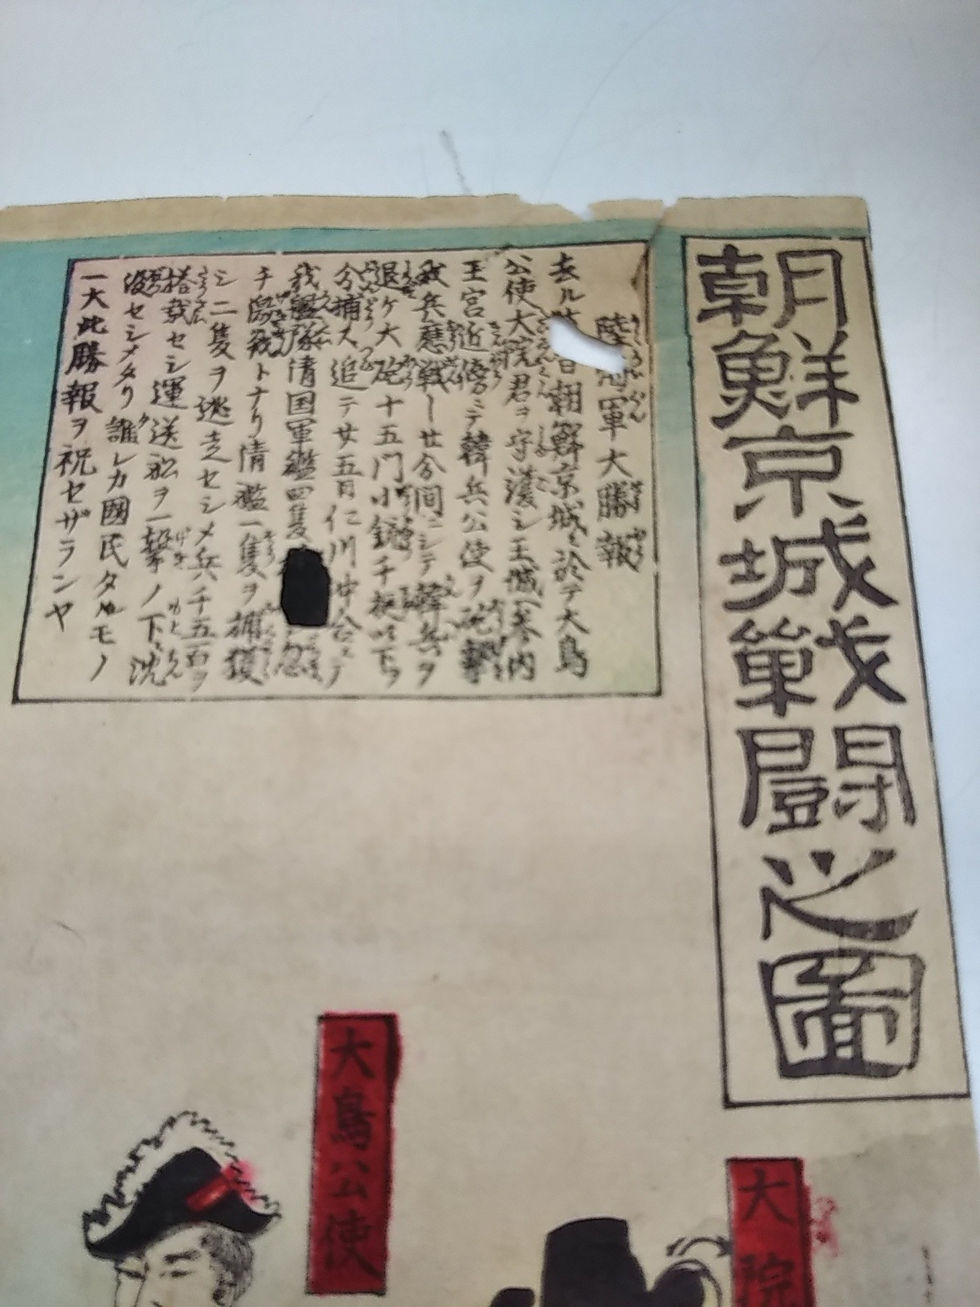 朝鮮京城戦闘之圖
陸 軍大勝報
去ル 日朝鮮京城ニ於テ大鳥
公使大院君ヲ守護シ王城ヘ参内
王宮近傍ニテ韓兵公使ヲ砲撃
我兵應戦し廿分間ニシテ韓兵ヲ
退ケ大砲十五門小銃千挺以下ヲ
分捕ス追テ廿五日仁川沖合ニテ
我艦隊清国軍艦四隻 忽
チ激戦トナリ清艦一隻ヲ捕獲
シ二隻ヲ逃走セシメ兵千五百ヲ
搭載セシ運送舩ヲ一撃ノ下ニ沈
没セシメタリ誰レカ國民タルモノ
一大此勝報ヲ祝セザランヤ
大鳥公使
大院